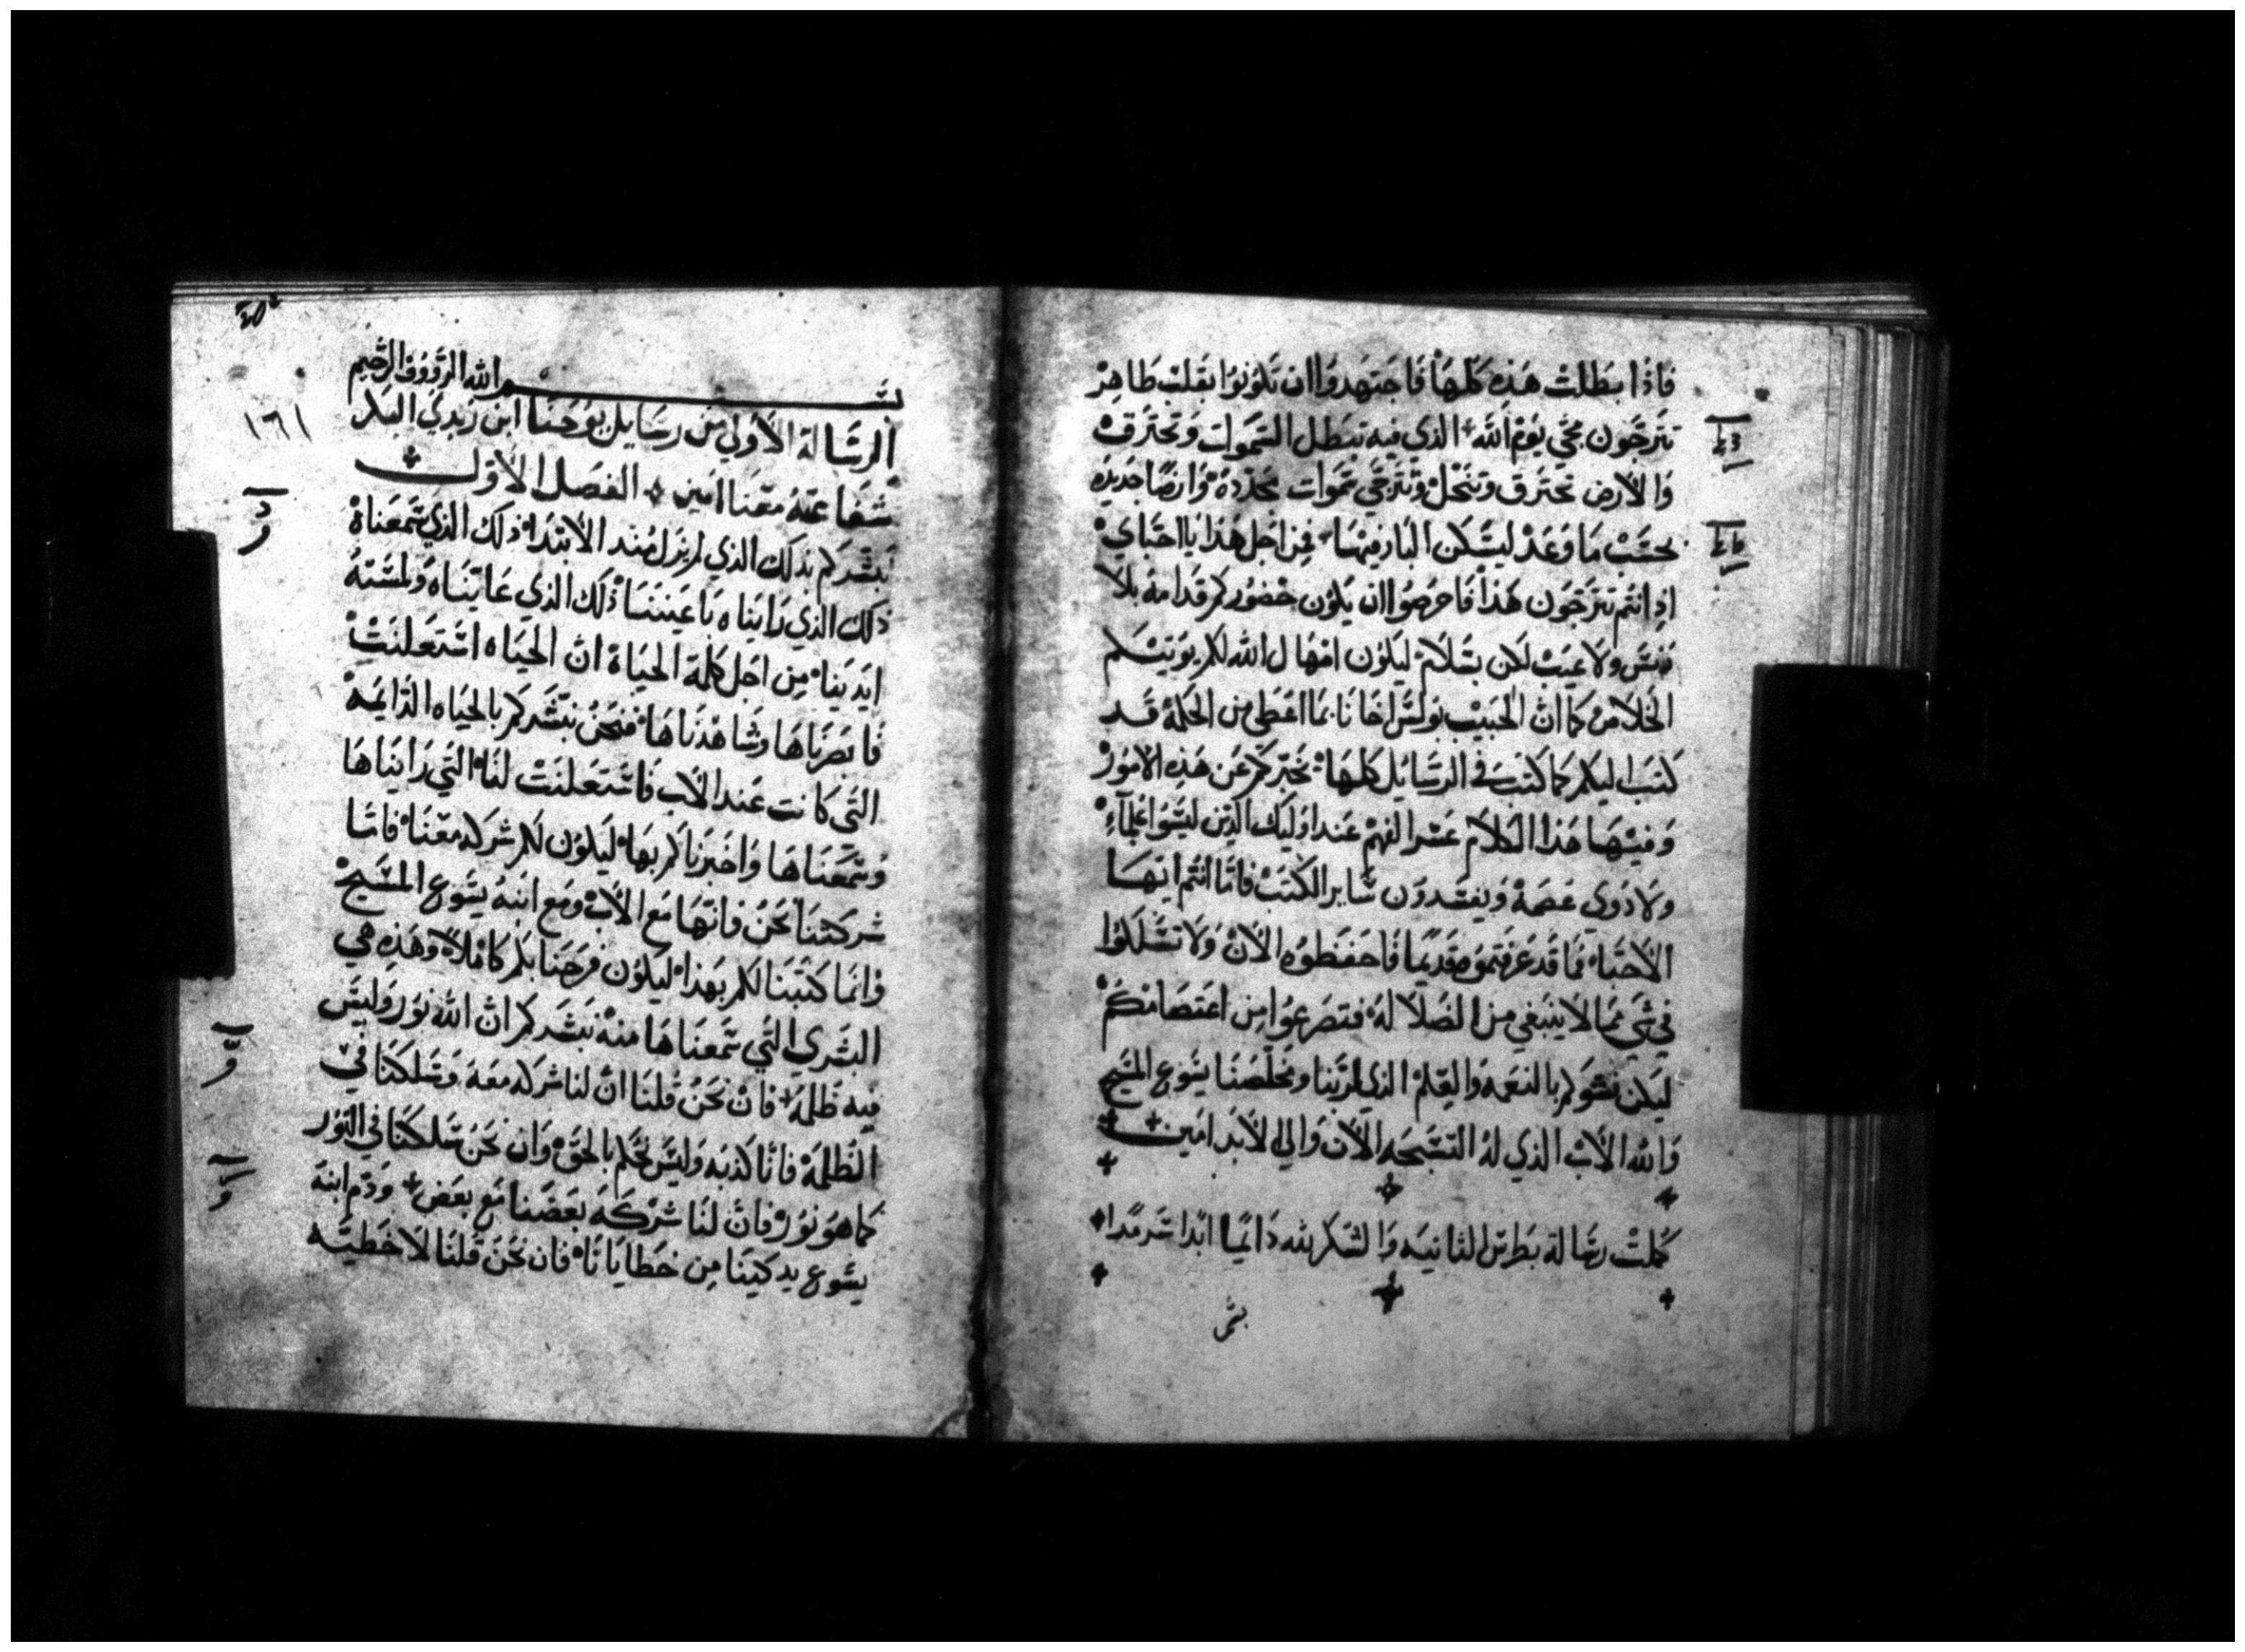 فاذا بطلت هذه كلها فاجتهدوا ان تكونوا بقلب طاهر
تترجون مجي يوم الله الذي فيه تبطل السموات وتحترق
والارض تحترق وتنحل ونترجي سموات مجدده وارضا جديده
بحسب ما وعد ليسكن البار فيها فمن اجل هذا يا احباي
اذ انتم تترجون هذا فاحرصوا ان يكون حضوركم قدامه بلا
دنس ولا عيب لكن بسلام ليكون امهال الله لكم يوتيكم
الخلاص كما ان الحبيب بولس اخانا بما اعطي من الحكمة قد
كتب اليكم كما كتب في الرسايل كلها تخبركم عن هذه الامور
وفيها هذا الكلام عسر الفهم عند اوليك الذين ليسوا علماء
ولا ذوي عصمة ويفسدون ساير الكتب فاما انتم ايها
الاحباء فما قد عرفتموه قديما فاحفظوه الان ولا تسلكوا
في شي مما لا ينبغي من الضلالة فتصرعوا من اعتصامكم
ليكن نشوكم بالنعمه والعلم الذي لربنا ومخلصنا يسوع المسيح
والله الاب الذي له التسبحه الان والي الابد امين
كملت رسالة بطرس الثانيه والشكر لله دايما ابدا سرمدا
بسم
١٦١
بسم الله الرووف الرحيم
الرسالة الاولي من رسايل يوحنا ابن زبدي البكر
شفاعته معنا امين الفصل الاول
نبشركم بذلك الذي لم يزل منذ الابتداء ذلك الذي سمعناه
ذلك الذي رايناه باعيننا ذلك الذي عايناه ولمسته
ايدينا من اجل كلمة الحياة ان الحياه استعلنت
فابصرناها وشاهدناها فنحن نبشركم بالحياه الدايمه
التي كانت عند الاب فاستعلنت لنا التي رايناها
وسمعناها واخبرناكم بها ليكون لكم شركه معنا فاما
شركتنا نحن فانها مع الاب ومع ابنه يسوع المسيح
وانما كتبنا لكم بهذا ليكون فرحنا بكم كاملا وهذه هي
البشري التي سمعناها منه نبشركم ان الله نور وليس
فيه ظلمه فان نحن قلنا ان لنا شركه معه وسلكنا في
الظلمة فانا كذبه وليس نحكم بالحق وان نحن سلكنا في النور
كما هو نور فان لنا شركه بعضنا مع بعض ودم ابنه
يسوع يدكينا من خطايانا فان نحن قلنا لا خطيه